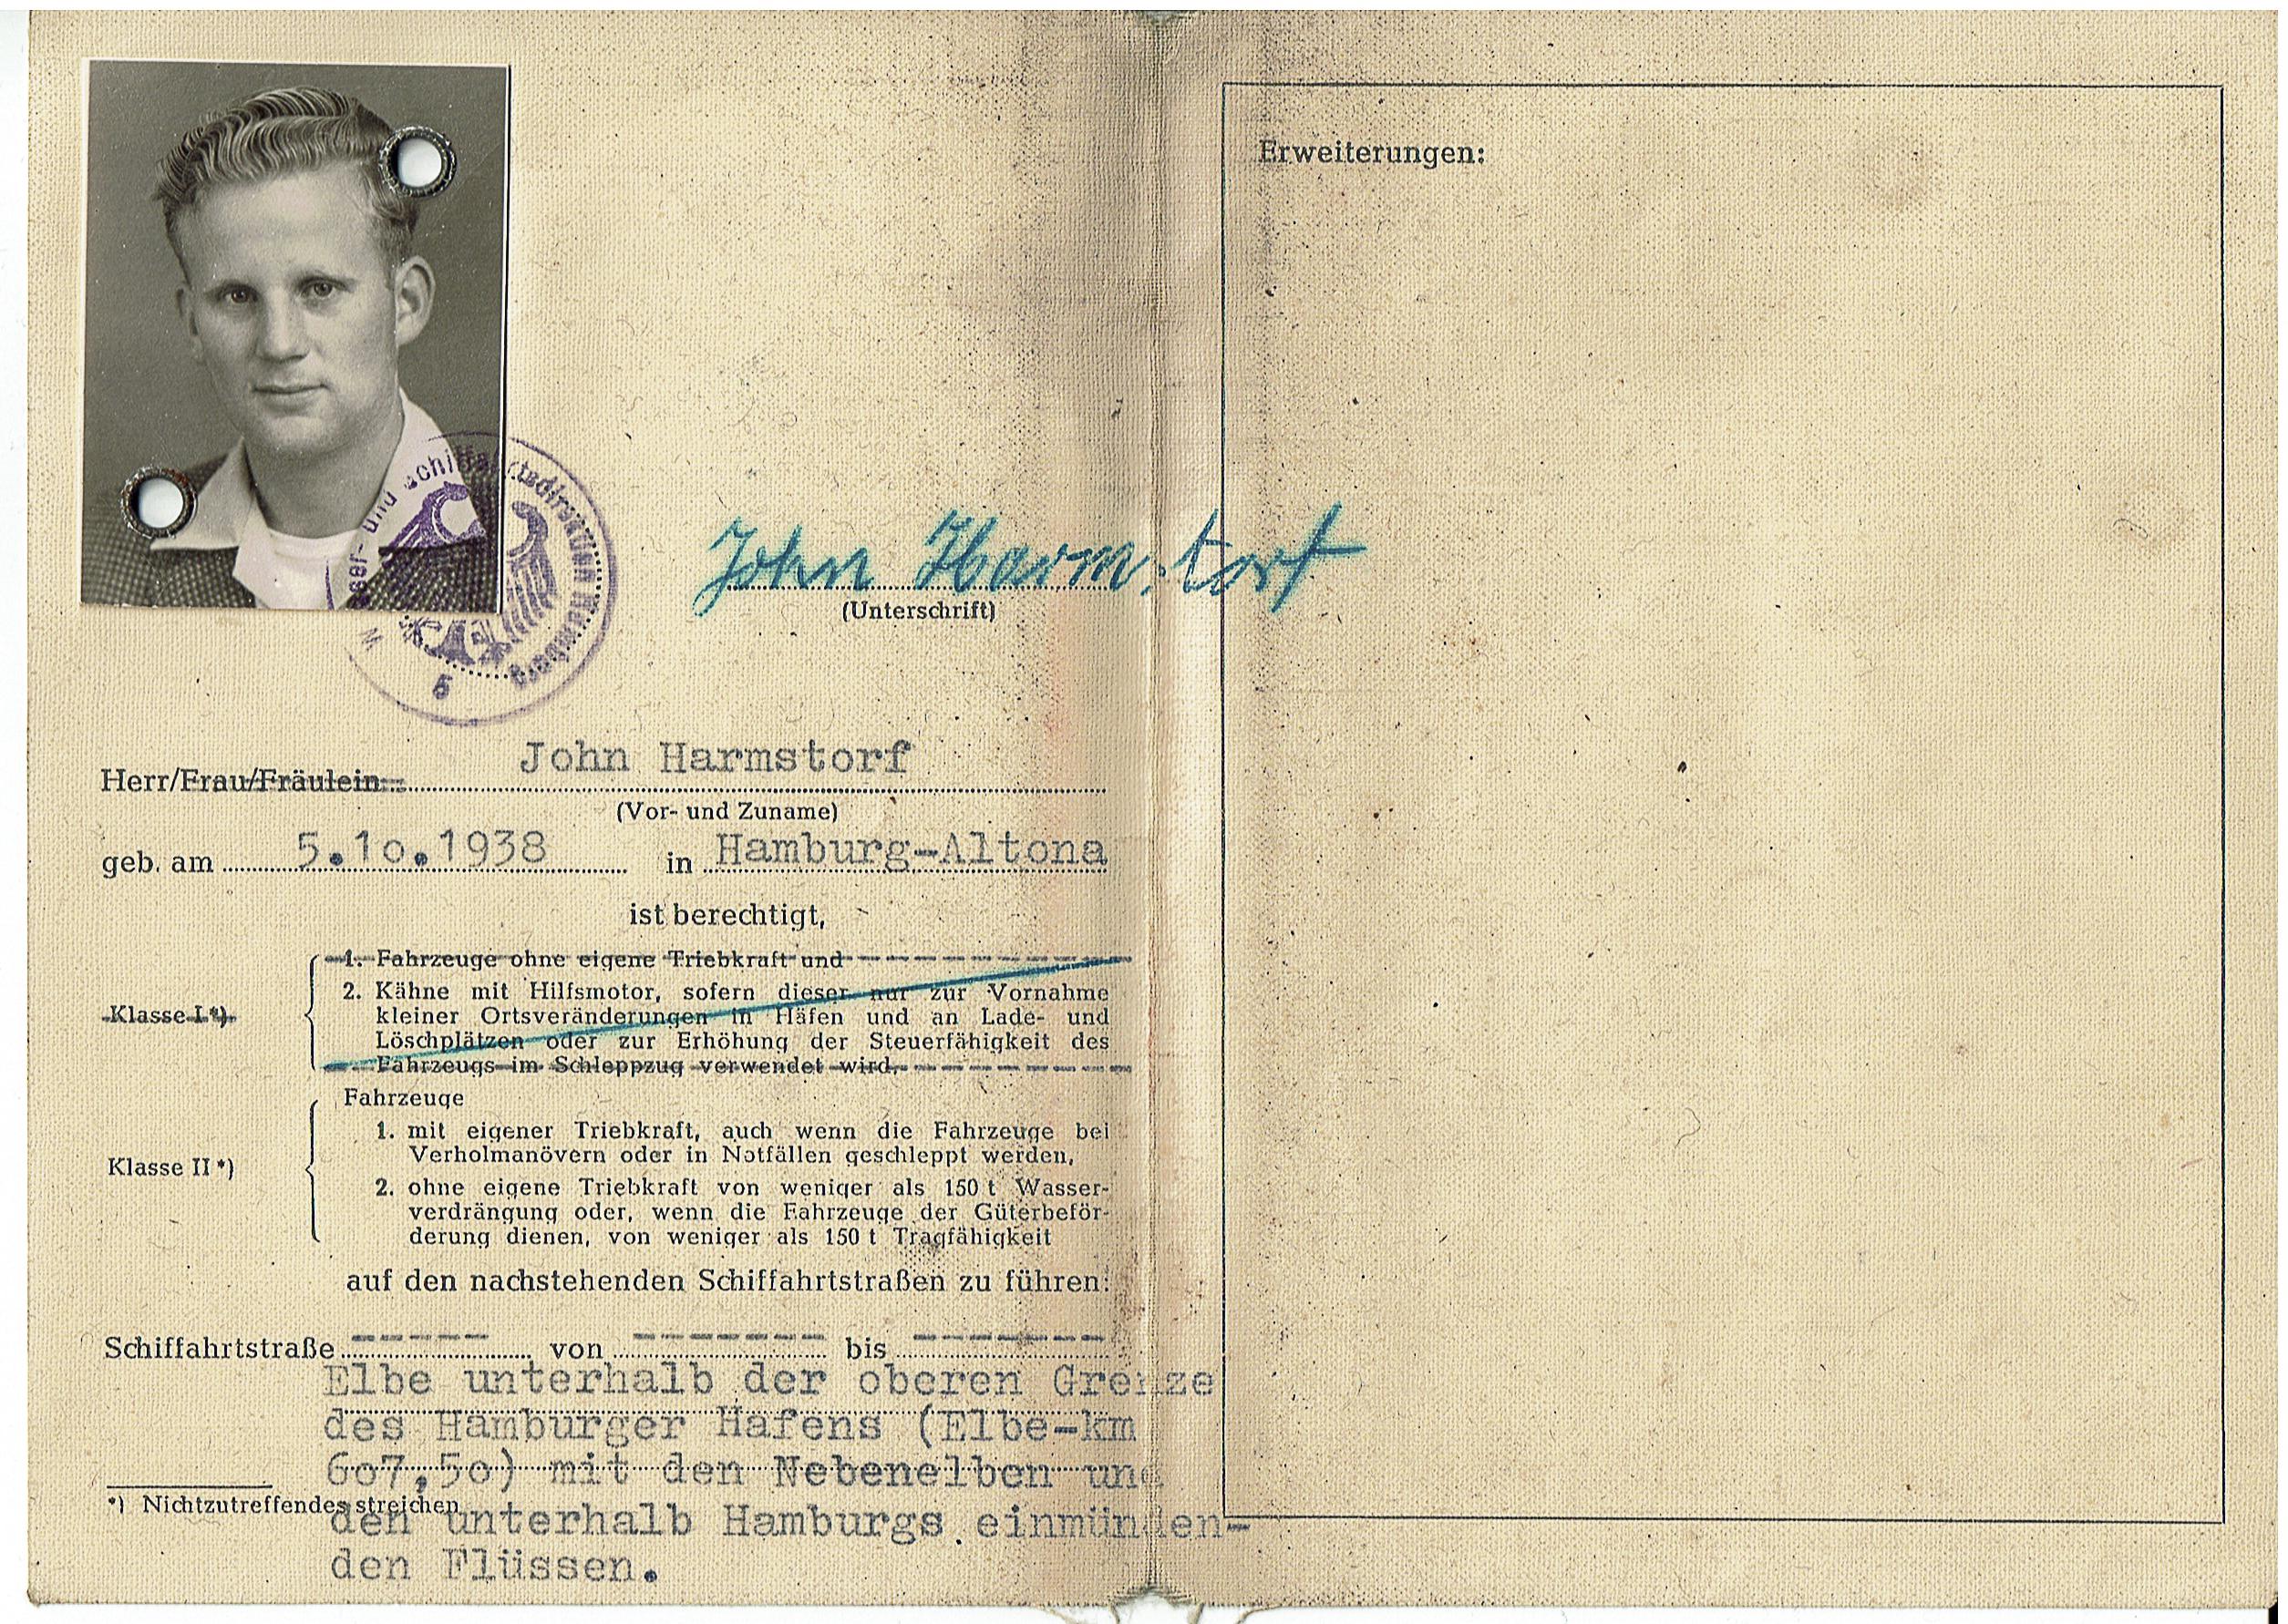 Erweiterungen:
Wasser- und Schiffahrtsdirektion Hamburg
5
John Harmstorf
(Unterschrift)
Herr/Frau/Fräulein John Harmstorf
(Vor- und Zuname)
geb. am 5.1o.1938 in Hamburg-Altona
ist berechtigt,
Klasse I *)
1. Fahrzeuge ohne eigene Triebkraft und
2. Kähne mit Hilfsmotor, sofern dieser nur zur Vornahme
kleiner Ortsveränderungen in Häfen und an Lade- und
Löschplätzen oder zur Erhöhung der Steuerfähigkeit des
Fahrzeugs im Schleppzug verwendet wird.
Klasse II *)
Fahrzeuge
1. mit eigener Triebkraft, auch wenn die Fahrzeuge bei
Verholmanövern oder in Notfällen geschleppt werden,
2. ohne eigene Triebkraft von weniger als 150 t Wasser-
verdrängung oder, wenn die Fahrzeuge der Güterbeför-
derung dienen, von weniger als 150 t Tragfähigkeit
auf den nachstehenden Schiffahrtstraßen zu führen:
Schiffahrtstraße ----- von ------- bis -------
Elbe unterhalb der oberen Grenze
des Hamburger Hafens (Elbe-km
6o7,5o) mit den Nebenelben und
den unterhalb Hamburgs einmünden-
den Flüssen.
*) Nichtzutreffendes streichen